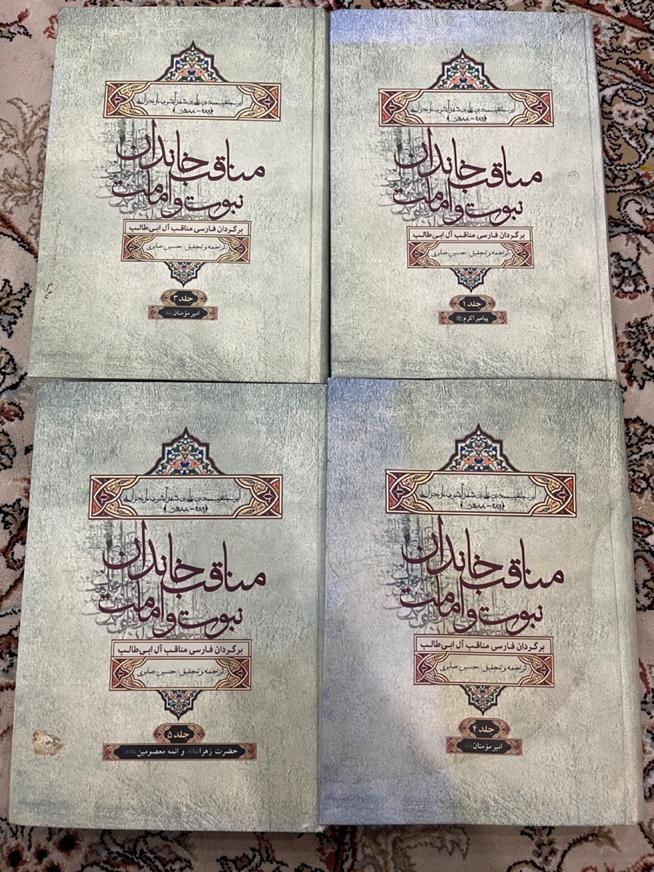 مناقب خاندان
نبوت و امامت
برگردان فارسی مناقب آل ابی‌طالب
ترجمه و تحقیق: حسین صابری
جلد ۱
پیامبر اکرم ﷺ
مناقب خاندان
نبوت و امامت
برگردان فارسی مناقب آل ابی‌طالب
ترجمه و تحقیق: حسین صابری
جلد ۳
امیر مؤمنان
مناقب خاندان
نبوت و امامت
برگردان فارسی مناقب آل ابی‌طالب
ترجمه و تحقیق: حسین صابری
جلد ۴
امیر مؤمنان
مناقب خاندان
نبوت و امامت
برگردان فارسی مناقب آل ابی‌طالب
ترجمه و تحقیق: حسین صابری
جلد ۵
حضرت زهرا و ائمه معصومین